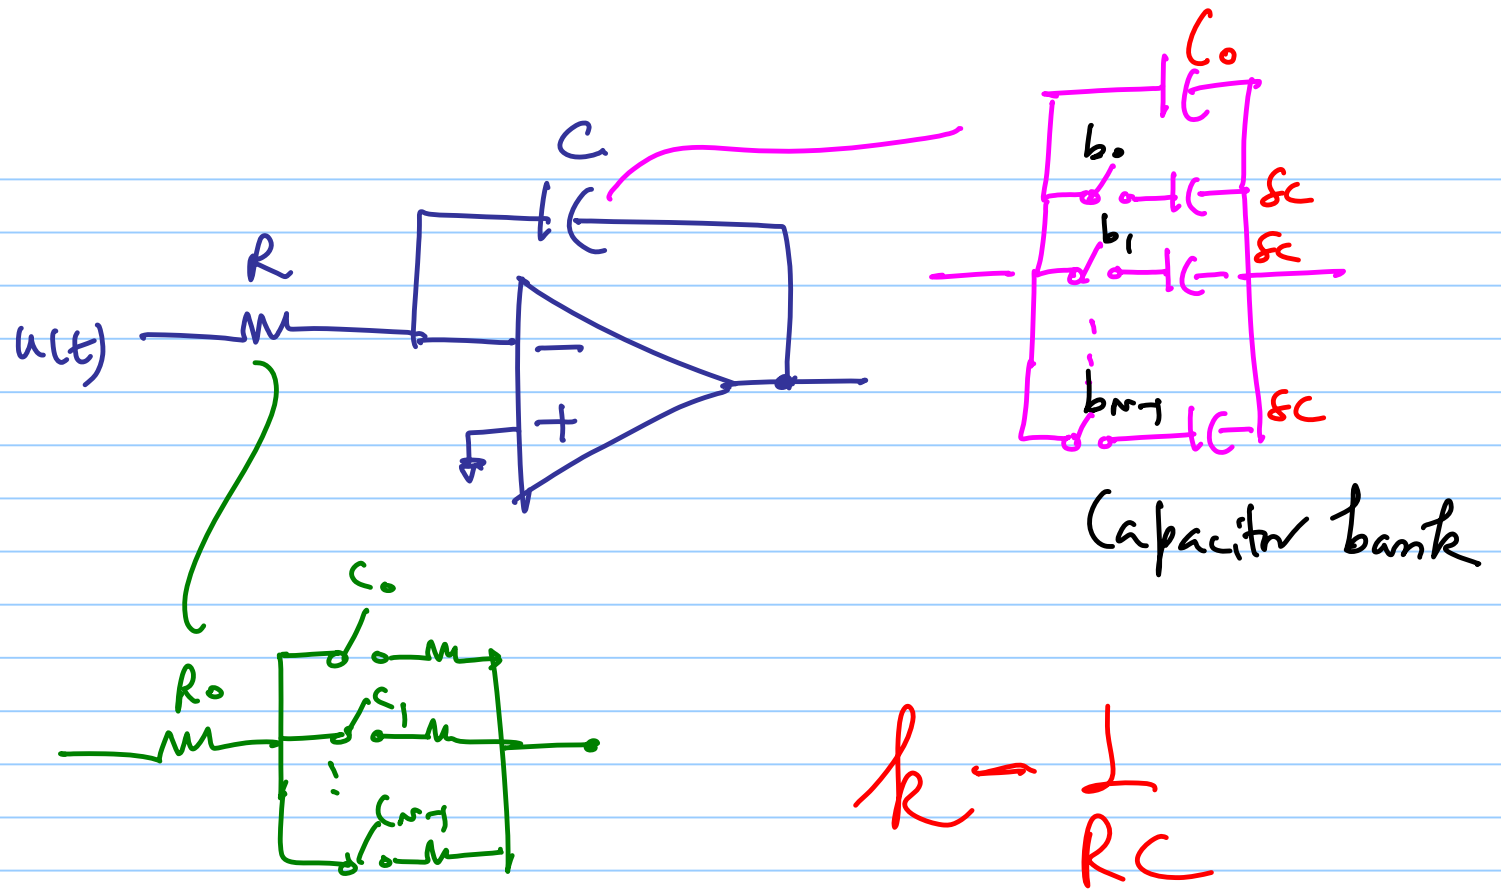 C₀
C
b₀
δC
R
b₁
δC
u(t)
−
b_{M-1}
δC
+
Capacitor bank
C₀
R₀
C₁
k = 1/RC
C_{N-1}